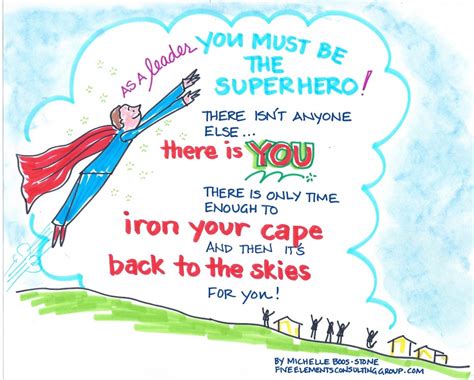 AS A leader YOU MUST BE
THE
SUPERHERO!
THERE ISN'T ANYONE
ELSE...
there is YOU
THERE IS ONLY TIME
ENOUGH TO
iron your cape
AND THEN IT'S
back to the skies
FOR YOU!
BY MICHELLE BOOS-STONE
FIVEELEMENTSCONSULTINGGROUP.COM